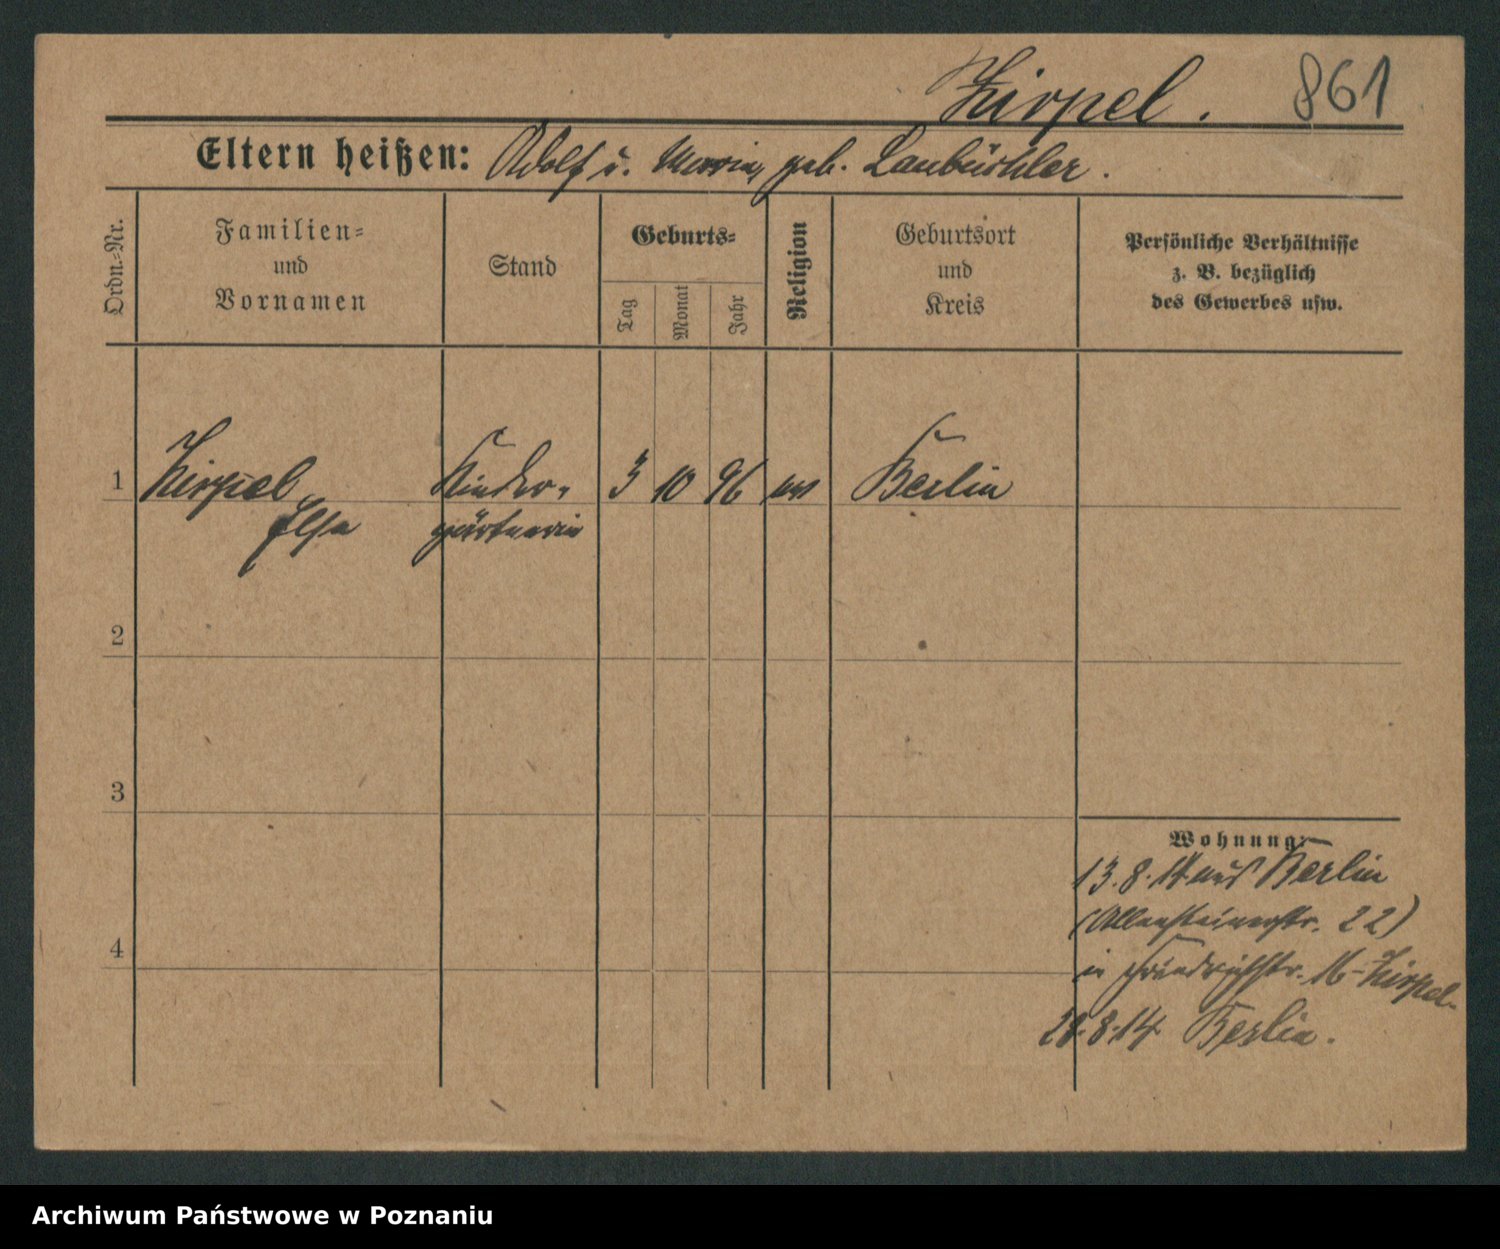 Zirpel. 861
Eltern heißen: Adolf u. Maria, geb. Laubüchler.
Ordn.-Nr.
Familien-
und
Vornamen
Stand
Geburts-
Tag
Monat
Jahr
Religion
Geburtsort
und
Kreis
Persönliche Verhältnisse
z. B. bezüglich
des Gewerbes usw.
1 Zirpel, Kinder- 3 10 96 ev Berlin
Else gärtnerin
2
3
4
Wohnung:
13.8.14 aus Berlin
(Allensteinerstr. 22)
in Friedrichstr. 16 - Zirpel-
28.8.14 Berlin.
Archiwum Państwowe w Poznaniu